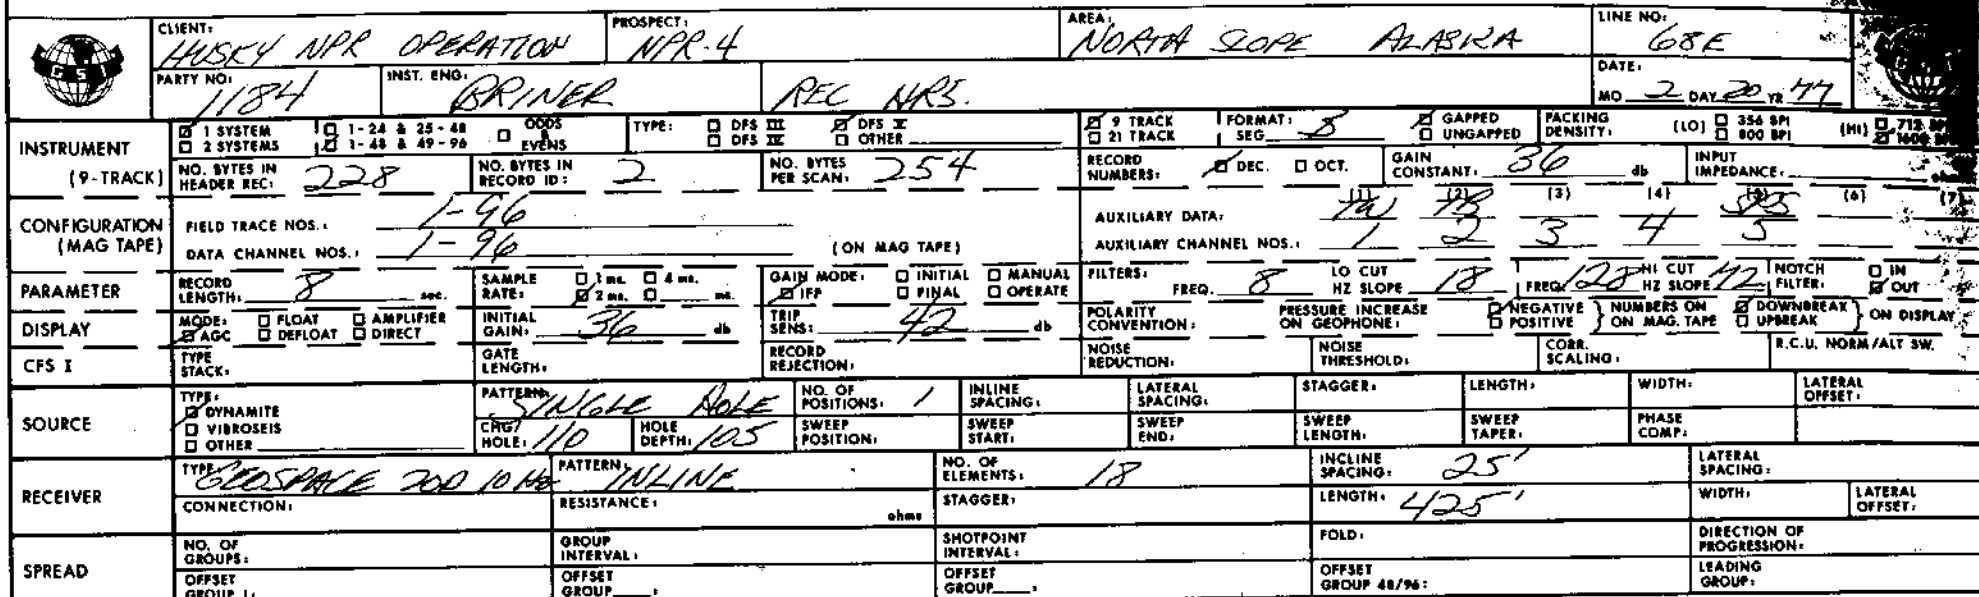 CLIENT: HUSKY NPR OPERATION PROSPECT: NPR-4 AREA: NORTH SLOPE ALASKA LINE NO: 68E
GSI
PARTY NO: 1184 INST. ENG: BRINER REC HRS. DATE: MO 2 DAY 20 YR 77
INSTRUMENT (9-TRACK) 1 SYSTEM 1-24 & 25-48 ODDS & EVENS TYPE: DFS III DFS V 9 TRACK FORMAT: SEG B GAPPED PACKING DENSITY: (LO) 356 BPI (HI) 712 BPI
2 SYSTEMS 1-48 & 49-96 DFS IV OTHER 21 TRACK UNGAPPED 800 BPI 1600 BPI
NO. BYTES IN HEADER REC: 228 NO. BYTES IN RECORD ID: 2 NO. BYTES PER SCAN: 254 RECORD NUMBERS: DEC. OCT. GAIN CONSTANT: 36 db INPUT IMPEDANCE: ohms
CONFIGURATION (MAG TAPE) FIELD TRACE NOS.: 1-96 AUXILIARY DATA: (1) TW (2) TB (3) (4) (5) (6) (7)
DATA CHANNEL NOS.: 1-96 (ON MAG TAPE) AUXILIARY CHANNEL NOS.: 1 2 3 4 5
PARAMETER RECORD LENGTH: 8 sec. SAMPLE RATE: 1 ms. 4 ms. 2 ms. ms. GAIN MODE: INITIAL MANUAL IFP FINAL OPERATE FILTERS: FREQ. 8 LO CUT HZ SLOPE 18 FREQ. 128 HI CUT HZ SLOPE 72 NOTCH FILTER: IN OUT
DISPLAY MODE: FLOAT AMPLIFIER AGC DEFLOAT DIRECT INITIAL GAIN: 36 db TRIP SENS: 42 db POLARITY CONVENTION: PRESSURE INCREASE ON GEOPHONE: NEGATIVE POSITIVE NUMBERS ON ON MAG. TAPE DOWNBREAK UPBREAK ON DISPLAY
CFS I TYPE STACK: GATE LENGTH: RECORD REJECTION: NOISE REDUCTION: NOISE THRESHOLD: CORR. SCALING: R.C.U. NORM/ALT SW.
SOURCE TYPE: DYNAMITE VIBROSEIS OTHER PATTERN: SINGLE HOLE NO. OF POSITIONS: 1 INLINE SPACING: LATERAL SPACING: STAGGER: LENGTH: WIDTH: LATERAL OFFSET:
CHG/HOLE: 110 HOLE DEPTH: 105 SWEEP POSITION: SWEEP START: SWEEP END: SWEEP LENGTH: SWEEP TAPER: PHASE COMP:
RECEIVER TYPE: GEOSPACE 20D 10 Hz PATTERN: INLINE NO. OF ELEMENTS: 18 INCLINE SPACING: 25' LATERAL SPACING:
CONNECTION: RESISTANCE: ohms STAGGER: LENGTH: 425' WIDTH: LATERAL OFFSET:
SPREAD NO. OF GROUPS: GROUP INTERVAL: SHOTPOINT INTERVAL: FOLD: DIRECTION OF PROGRESSION:
OFFSET GROUP 1: OFFSET GROUP : OFFSET GROUP : OFFSET GROUP 48/96: LEADING GROUP: